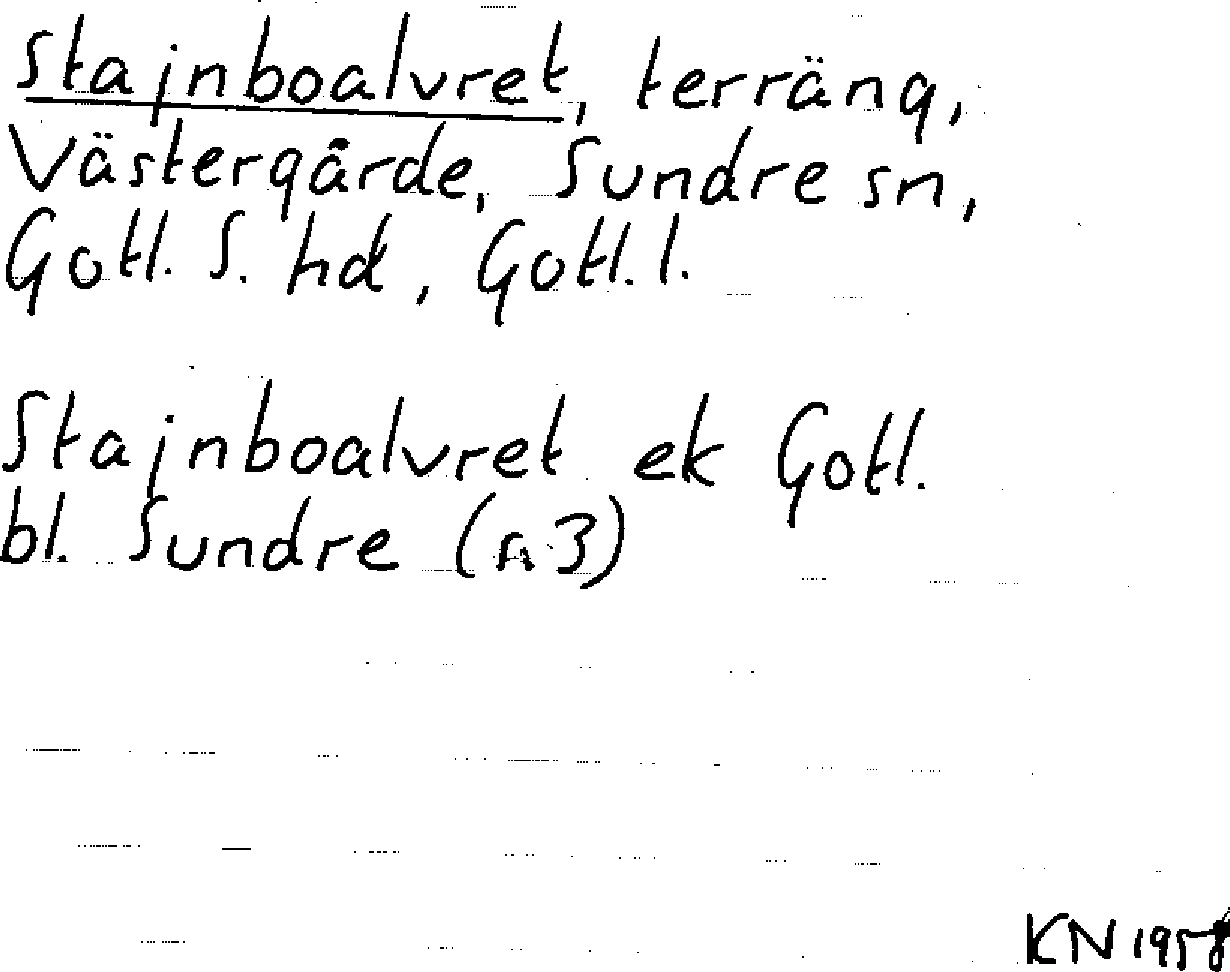 Stajnboalvret, terräng,
Västergårde, Sundre sn,
Gotl. S. hd, Gotl. l.
Stajnboalvret ek Gotl.
bl. Sundre (n 3)
KN 1958